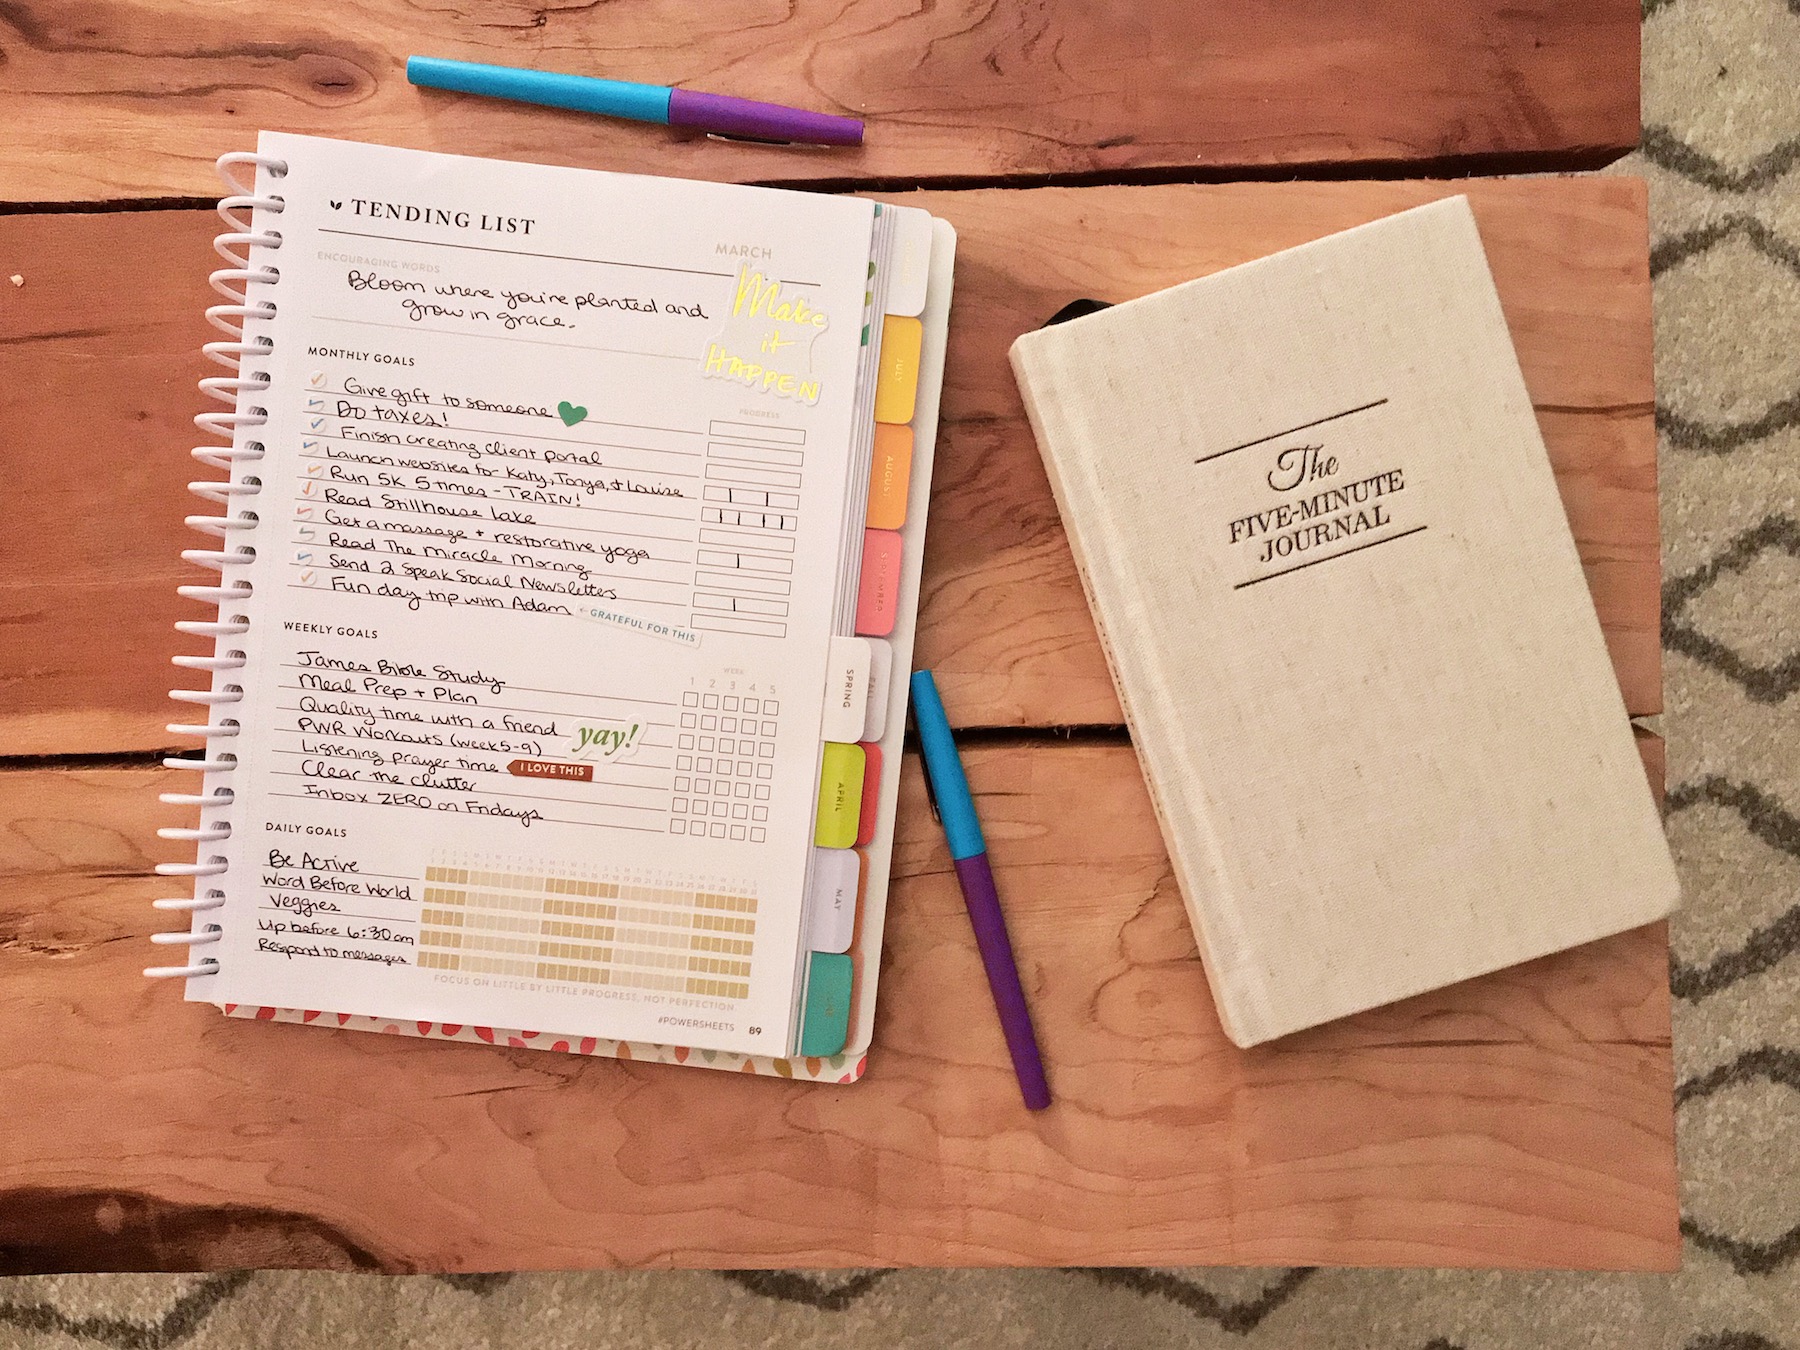 TENDING LIST
MARCH
ENCOURAGING WORDS
Bloom where you're planted and
grow in grace.
Make
it
HAPPEN
MONTHLY GOALS
PROGRESS
Give gift to someone
Do taxes!
Finish creating client portal
Launch websites for Katy, Tonya, + Louise
Run 5K 5 times - TRAIN!
Read Stillhouse Lake
Get a massage + restorative yoga
Read The Miracle Morning
Send 2 Speak Social Newsletters
Fun day trip with Adam
GRATEFUL FOR THIS
WEEKLY GOALS
WEEK
1 2 3 4 5
James Bible Study
Meal Prep + Plan
Quality time with a friend
yay!
PWR Workouts (week 5-9)
Listening prayer time
I LOVE THIS
Clear the clutter
Inbox ZERO on Fridays
DAILY GOALS
Be Active
Word Before World
Veggies
Up before 6:30am
Respond to messages
FOCUS ON LITTLE BY LITTLE PROGRESS, NOT PERFECTION.
#POWERSHEETS 89
JULY
AUGUST
SEPTEMBER
FALL
SPRING
APRIL
MAY
The
FIVE-MINUTE
JOURNAL